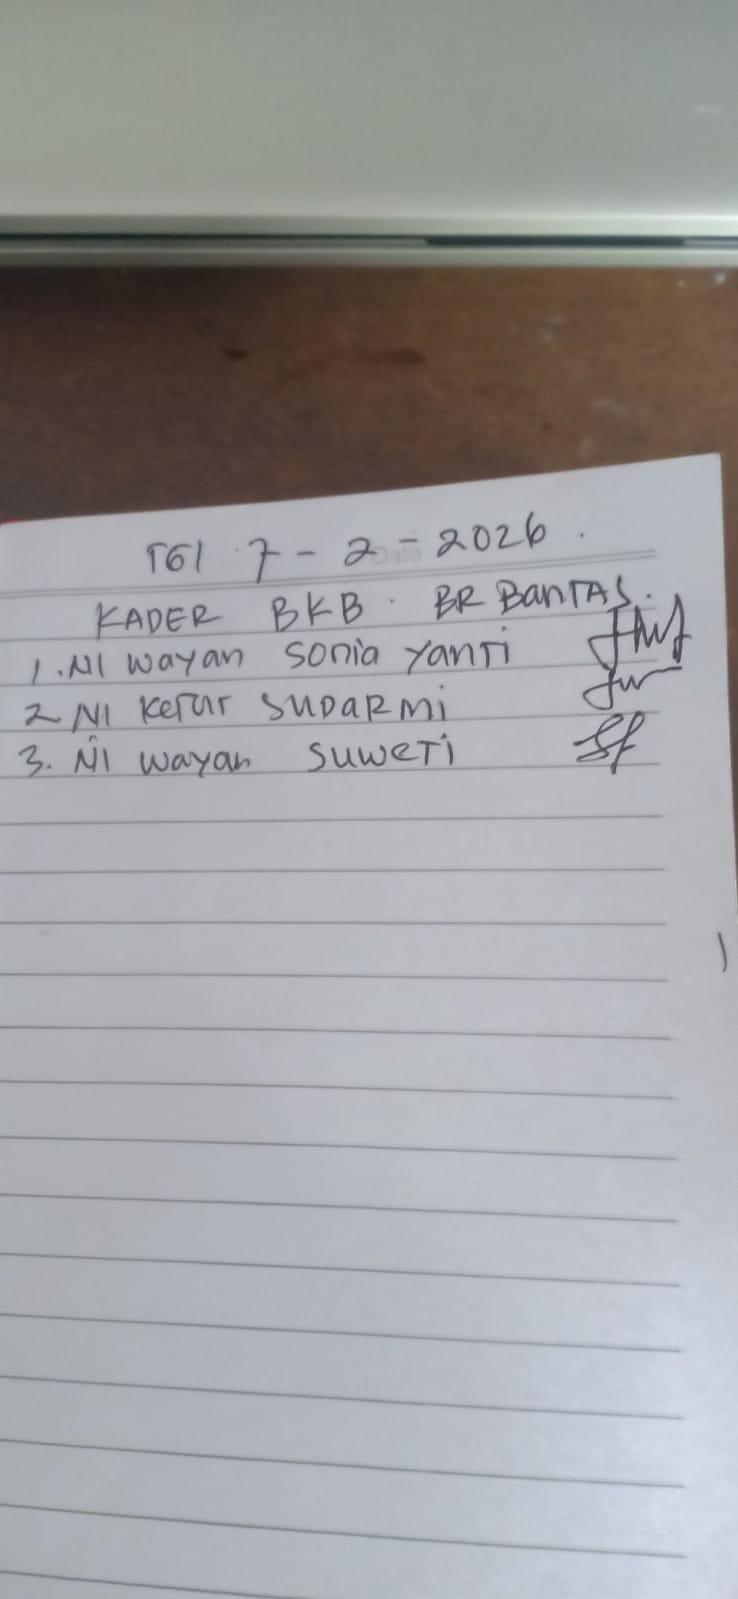 TGl 7-2-2026.
KADER BKB. BR BanTAS.
1. NI wayan Sonia Yanti
2 NI Ketut SUDARMi
3. Ni wayan Suweti